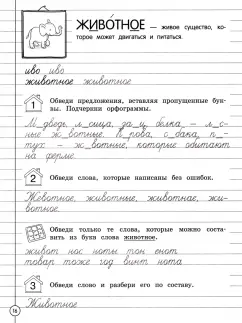 ЖИВОТНОЕ — живое существо, ко-
торое может двигаться и питаться.
иво иво
животное животное
1 Обведи предложения, вставляя пропущенные бук-
вы. Подчеркни орфограммы.
М_дведь, л_сица, за_ц, белка – л_с-
ные ж_вотные. К_рова, с_бака, п_-
тух – ж_вотные, которые обитают
на ферме.
2 Обведи слова, которые написаны без ошибок.
Жевотное, животные, животнае, жи-
вотное.
Обведи только те слова, которые можно соста-
вить из букв слова животное.
живот нос ноты тон енот
товар тоже год винт нота
3 Обведи слово и разбери его по составу.
Животное
16